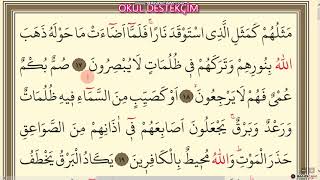 OKUL DESTEKÇİM
مَثَلُهُمْ كَمَثَلِ الَّذِي اسْتَوْقَدَ نَارًاۚ فَلَمَّٓا اَضَٓاءَتْ مَا حَوْلَهُ ذَهَبَ
اللّٰهُ بِنُورِهِمْ وَتَرَكَهُمْ ف۪ي ظُلُمَاتٍ لَا يُبْصِرُونَ ﴿١٧﴾ صُمٌّ بُكْمٌ
عُمْيٌ فَهُمْ لَا يَرْجِعُونَۙ ﴿١٨﴾ اَوْ كَصَيِّبٍ مِنَ السَّمَٓاءِ ف۪يهِ ظُلُمَاتٌ
وَرَعْدٌ وَبَرْقٌۚ يَجْعَلُونَ اَصَابِعَهُمْ ف۪ٓي اٰذَانِهِمْ مِنَ الصَّوَاعِقِ
حَذَرَ الْمَوْتِۜ وَاللّٰهُ مُح۪يطٌ بِالْكَافِر۪ينَ ﴿١٩﴾ يَكَادُ الْبَرْقُ يَخْطَفُ